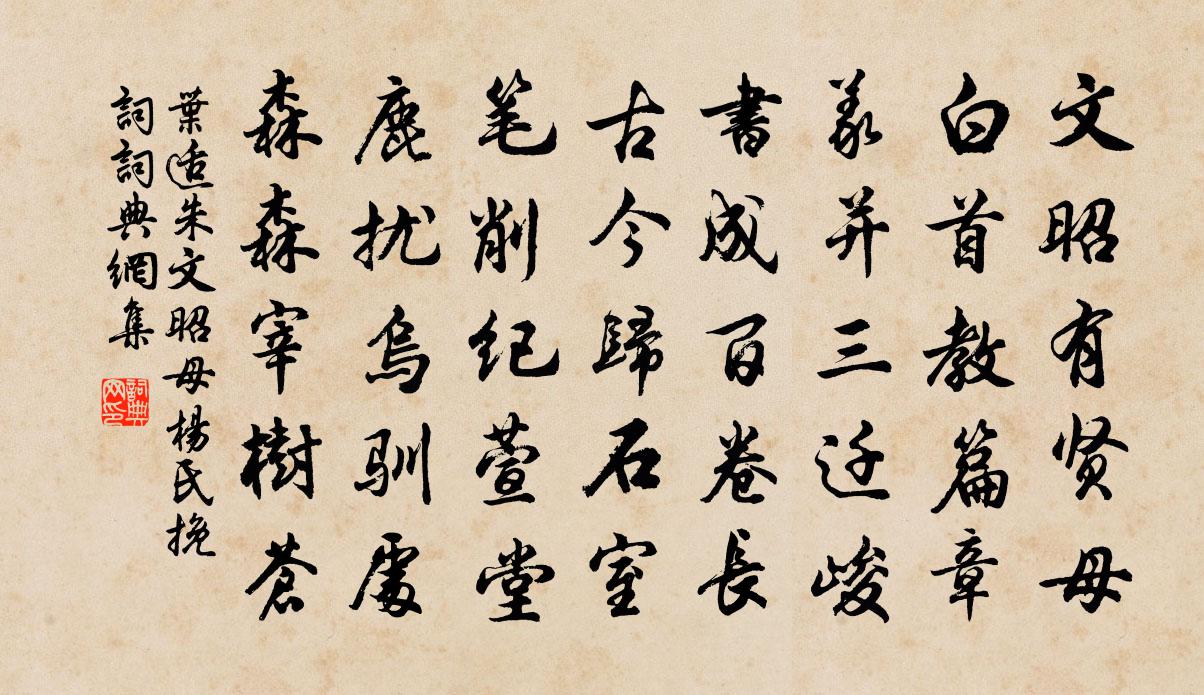 文昭有贤母
白首教篇章
義并三迁峻
書成百卷長
古今歸石室
笔削纪萱堂
鹿扰烏驯處
森森宰樹蒼
葉适朱文昭母楊氏挽
詞詞典網集
詞典
网印